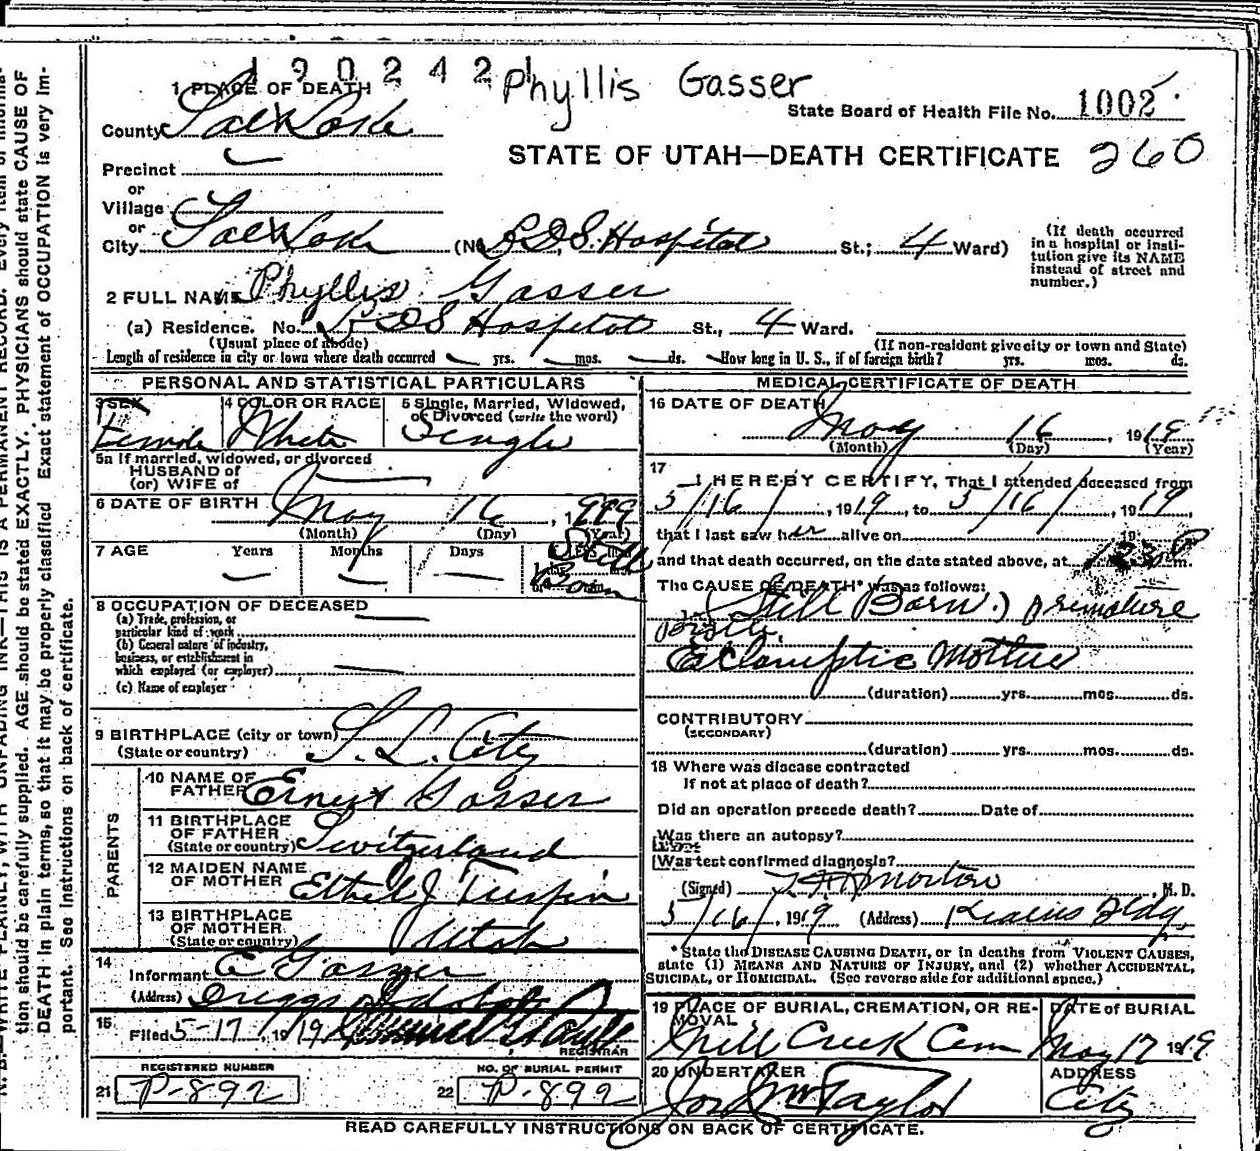 190242
Phyllis Gasser
1 PLACE OF DEATH
State Board of Health File No. 1002
County Salt Lake
STATE OF UTAH—DEATH CERTIFICATE 260
Precinct
or
Village
or
City Salt Lake (No. L.D.S. Hospital St.; 4 Ward)
(If death occurred in a hospital or insti-
tution give its NAME instead of street and
number.)
2 FULL NAME Phyllis Gasser
(a) Residence. No. L.D.S Hospital St., 4 Ward.
(Usual place of abode) (If non-resident give city or town and State)
Length of residence in city or town where death occurred yrs. mos. ds. How long in U. S., if of foreign birth? yrs. mos. ds.
PERSONAL AND STATISTICAL PARTICULARS
3 SEX Female
4 COLOR OR RACE White
5 Single, Married, Widowed,
or Divorced (write the word)
Single
5a If married, widowed, or divorced
HUSBAND of
(or) WIFE of
6 DATE OF BIRTH May 16, 1919
(Month) (Day) (Year)
7 AGE Years Months Days
Still Born
8 OCCUPATION OF DECEASED
(a) Trade, profession, or
particular kind of work
(b) General nature of industry,
business, or establishment in
which employed (or employer)
(c) Name of employer
9 BIRTHPLACE (city or town) S. L. City
(State or country)
PARENTS
10 NAME OF
FATHER Ernest Gasser
11 BIRTHPLACE
OF FATHER
(State or country) Switzerland
12 MAIDEN NAME
OF MOTHER Ethel J Turpin
13 BIRTHPLACE
OF MOTHER
(State or country) Utah
14 Informant E Gasser
(Address) Driggs Idaho
15 Filed 5-17, 1919
REGISTRAR
REGISTERED NUMBER
21 P-892
NO. OF BURIAL PERMIT
22 P-892
MEDICAL CERTIFICATE OF DEATH
16 DATE OF DEATH
May 16, 1919
(Month) (Day) (Year)
17 I HEREBY CERTIFY, That I attended deceased from
5/16/, 1919, to 5/16/, 1919,
that I last saw her alive on 19
and that death occurred, on the date stated above, at m.
The CAUSE OF DEATH* was as follows:
(Still Born.) premature
Eclamptic Mother
(duration) yrs. mos. ds.
CONTRIBUTORY
(SECONDARY)
(duration) yrs. mos. ds.
18 Where was disease contracted
If not at place of death?
Did an operation precede death? Date of
Was there an autopsy?
What test confirmed diagnosis?
(Signed) Morton, M. D.
5/16/, 1919 (Address) Kearns Bldg.
*State the DISEASE CAUSING DEATH, or in deaths from VIOLENT CAUSES,
state (1) MEANS AND NATURE OF INJURY, and (2) whether ACCIDENTAL,
SUICIDAL, or HOMICIDAL. (See reverse side for additional space.)
19 PLACE OF BURIAL, CREMATION, OR RE-
MOVAL
Mill Creek Cem
DATE of BURIAL
May 17 1919
20 UNDERTAKER
Jos Wm Taylor
ADDRESS
City
READ CAREFULLY INSTRUCTIONS ON BACK OF CERTIFICATE.
N. B.—WRITE PLAINLY, WITH UNFADING INK—THIS IS A PERMANENT RECORD. Every item of informa-
tion should be carefully supplied. AGE should be stated EXACTLY. PHYSICIANS should state CAUSE OF
DEATH in plain terms, so that it may be properly classified Exact statement of OCCUPATION is very im-
portant. See Instructions on back of certificate.